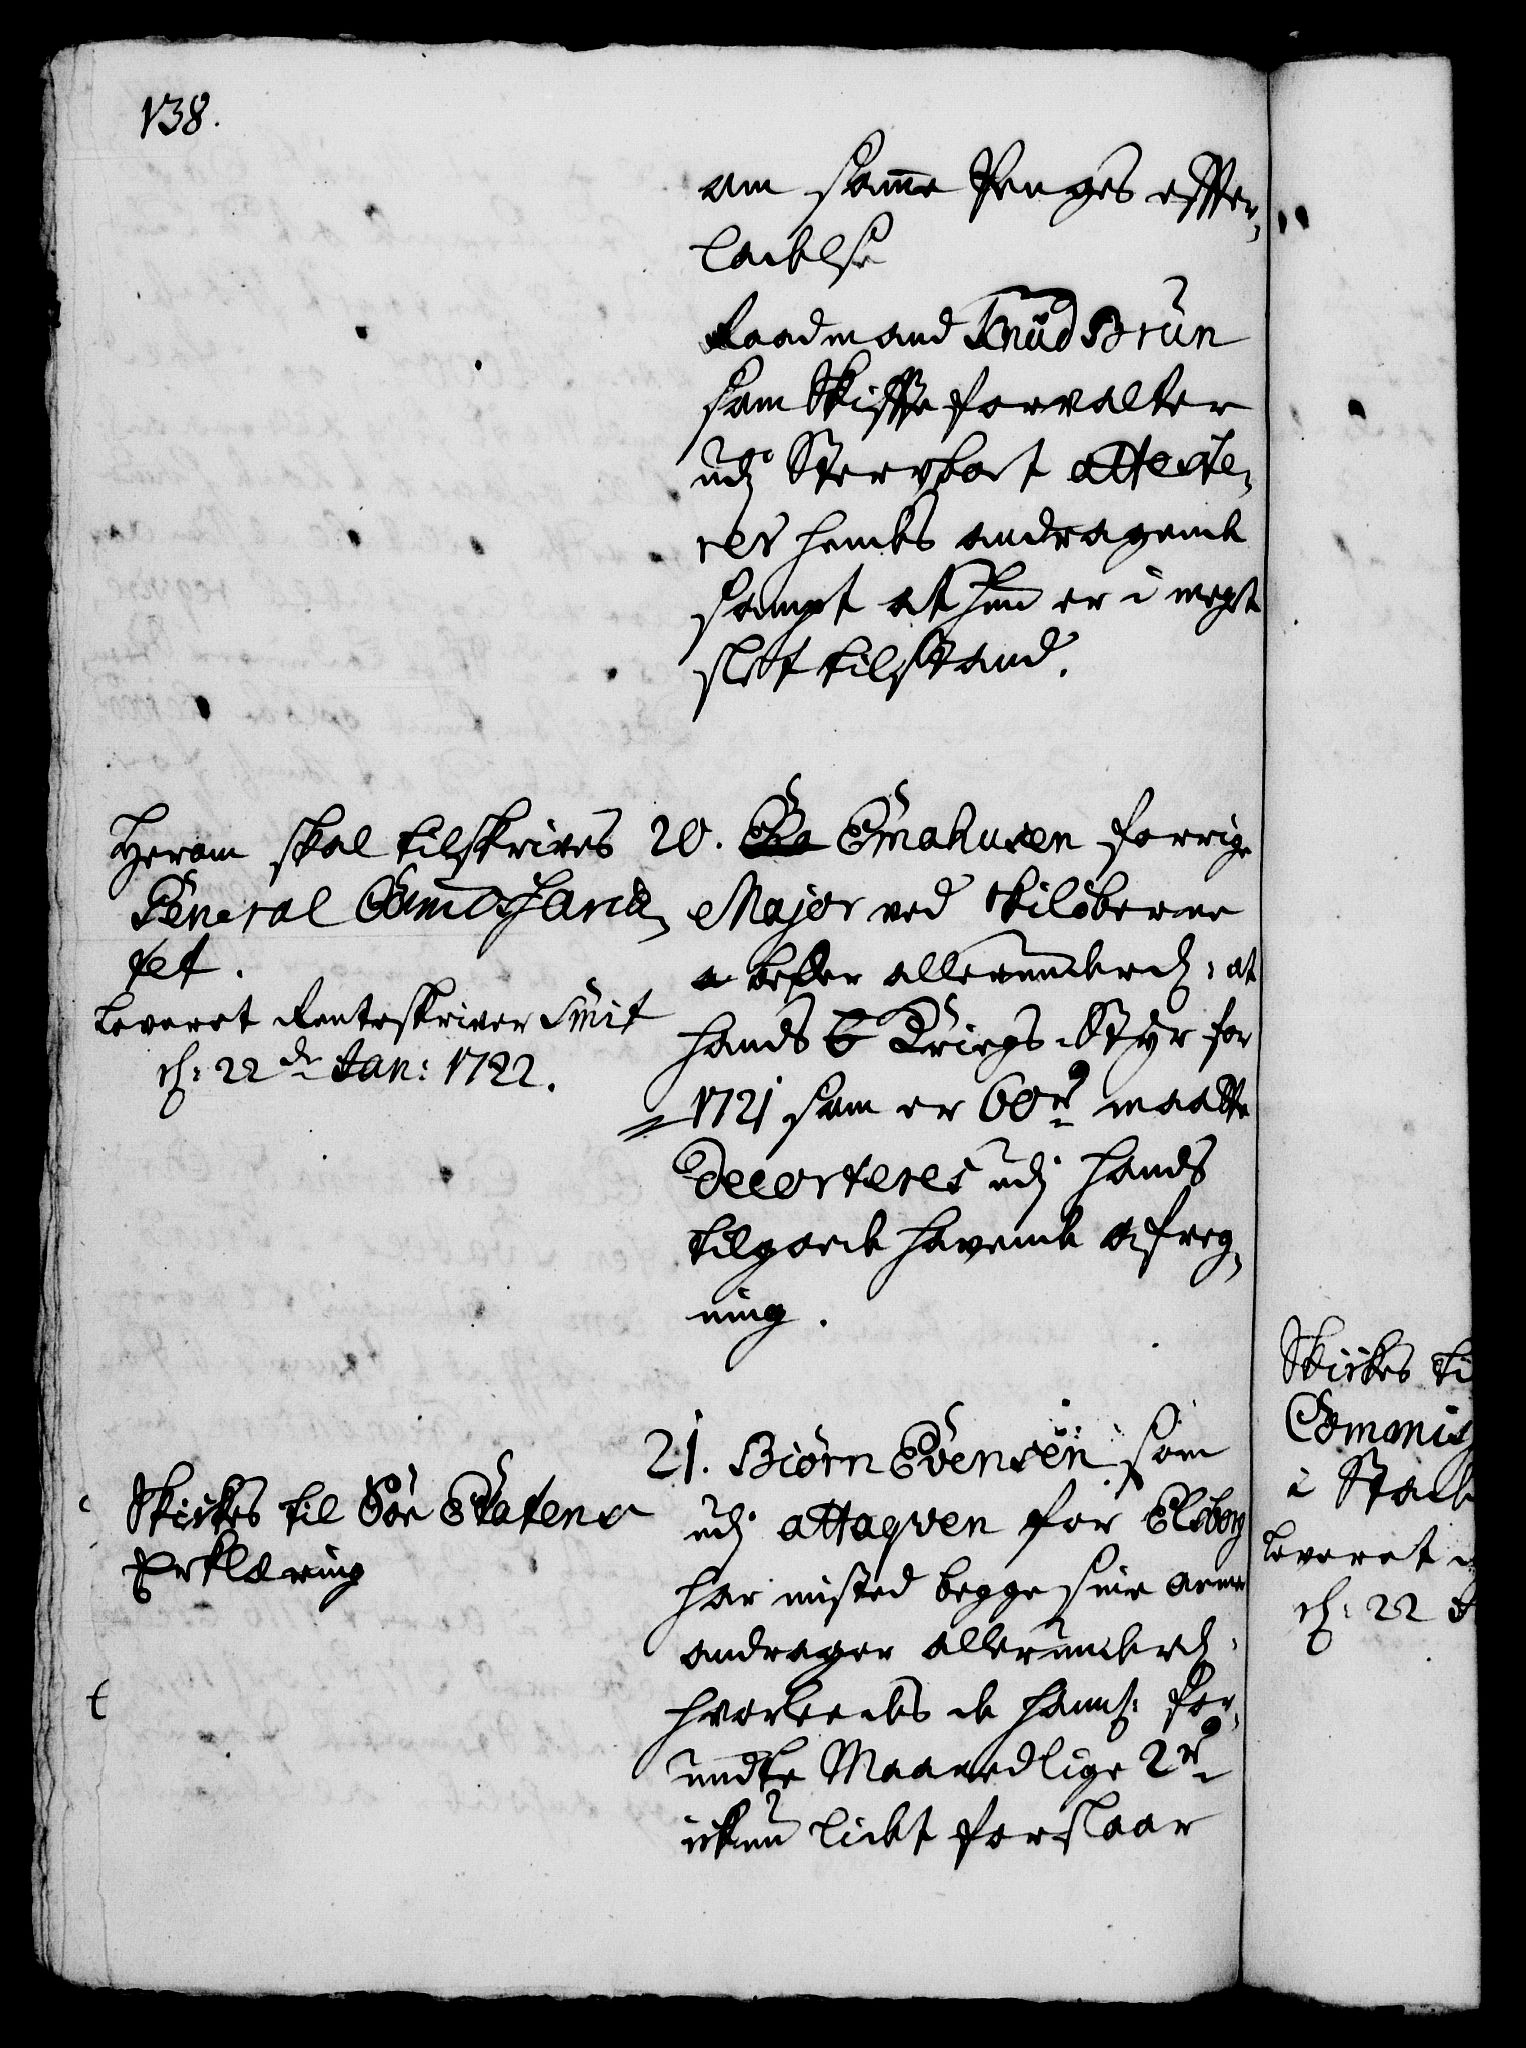 138.
om samme Penges effter-
ladelse
Raadmand Knud Brun
som Skiffteforvalter
udj Stervboet atteste-
rer hendes andragende
sampt at hun er i megt
slet tilstand.
Herom skal tilskrives
General Commissaria
tet.
leveret Renteskriver Smit
d: 22 de Jan: 1722.
20. Emahusen forrige
Major ved Skiløberne
beder allerunderd: at
hands Kriegs-Styr for
1721 som er 60 rd maatte
decorteres udj hands
tilgode havende afreg-
ning.
Skickes til Søe Etatens
Erklæring
21. Biørn Evensen som
udj attaqven for Elsborg
har misted begge sine arme
andrager allerunderd:
hvorledes de hannem for-
undte Maanedlige 2 rd
icken lidet forslaar
Skickes ti
Commis
i Stad
leveret
d: 22